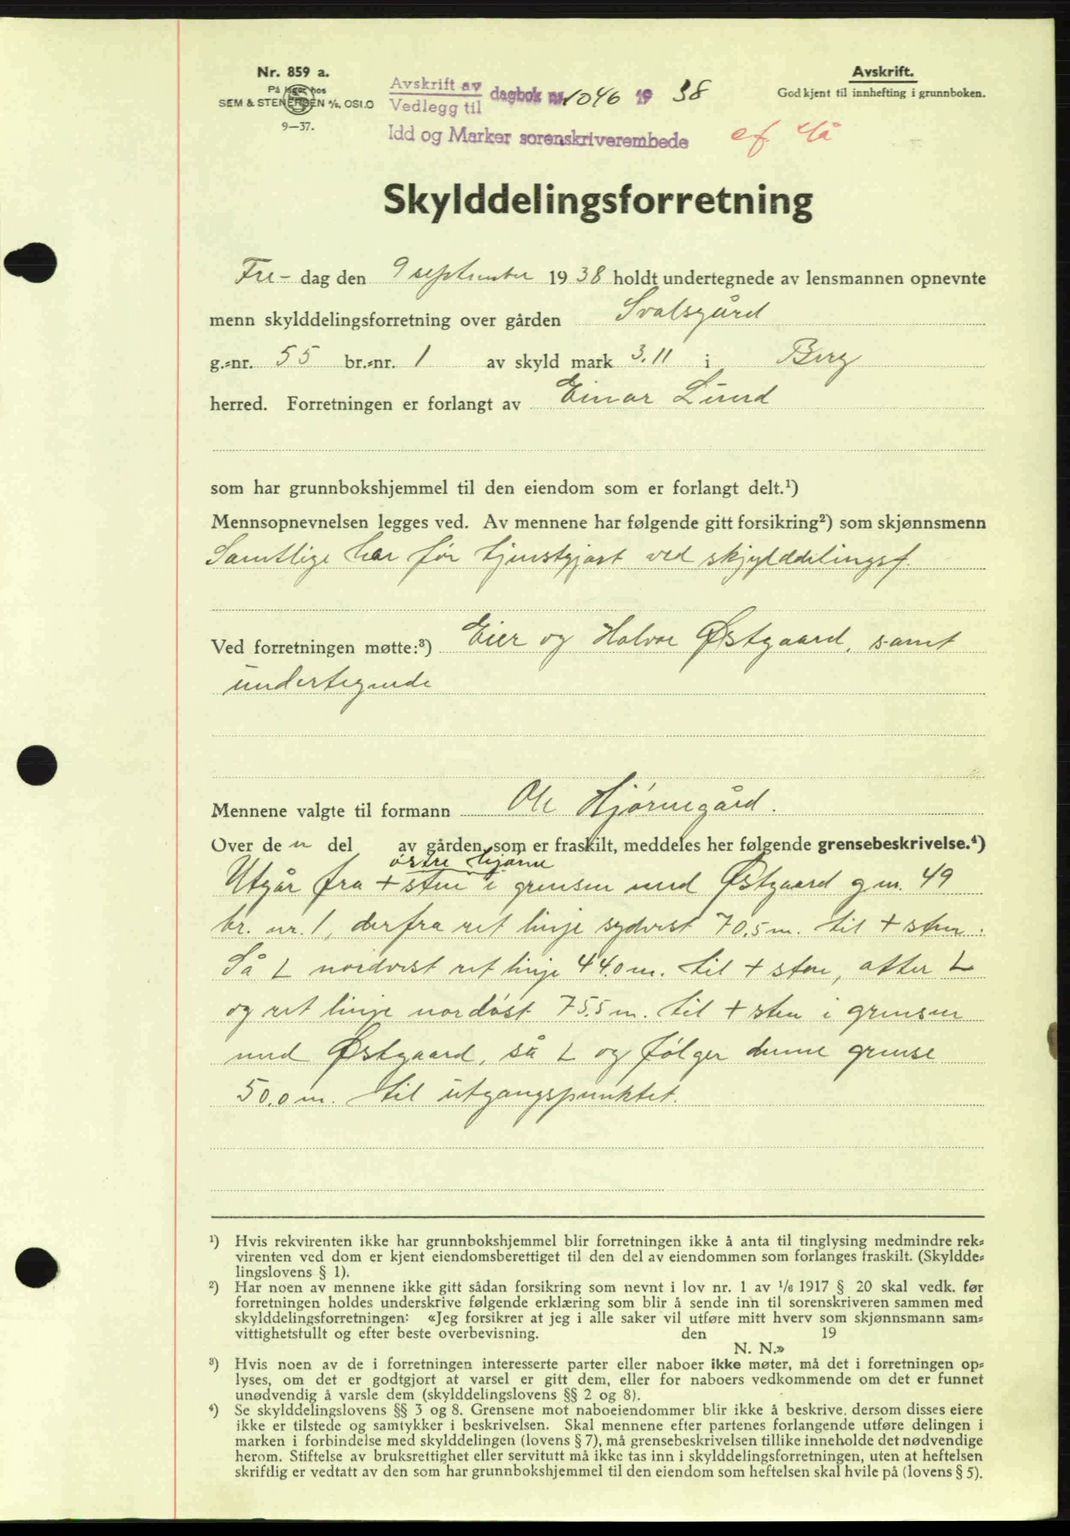 Nr. 859 a.
På lager hos
SEM & STENERSEN A/S, OSLO
9—37.
Avskrift av
Vedlegg til
dagbok nr. 1046 19 38
Idd og Marker sorenskriverembede
Avskrift.
Godkjent til innhefting i grunnboken.
Skylddelingsforretning
Fre- dag den 9 september 1938 holdt undertegnede av lensmannen opnevnte
menn skylddelingsforretning over gården Svalsgård
g.=nr. 55 br.=nr. 1 av skyld mark 3.11 i Berg
herred. Forretningen er forlangt av Einar Lund
som har grunnbokshjemmel til den eiendom som er forlangt delt.¹)
Mennsopnevnelsen legges ved. Av mennene har følgende gitt forsikring²) som skjønnsmenn
Samtlige har før tjenstgjort ved skjylddelingsf.
Ved forretningen møtte:³) Eier og Halvor Østgaard, samt
undertegnede
Mennene valgte til formann Ole Hjørnegård.
Over den del av gården, som er fraskilt, meddeles her følgende grensebeskrivelse.⁴)
østre hjørne
Utgår fra + sten i grensen med Østgaard g.nr. 49
br. nr. 1, derfra ret linje sydvest 70,5 m. til + sten.
Så L nordvest ret linje 44.0 m. til + sten, atter L
og ret linje nordøst 75.5 m. til + sten i grensen
med Østgaard, så L og følger denne grense
50.0 m. til utgangspunktet.
¹) Hvis rekvirenten ikke har grunnbokshjemmel blir forretningen ikke å anta til tinglysing medmindre rek=
virenten ved dom er kjent eiendomsberettiget til den del av eiendommen som forlanges fraskilt. (Skyldde=
lingslovens § 1).
²) Har noen av mennene ikke gitt sådan forsikring som nevnt i lov nr. 1 av 1/6 1917 § 20 skal vedk. før
forretningen holdes underskrive følgende erklæring som blir å sende inn til sorenskriveren sammen med
skylddelingsforretningen: «Jeg forsikrer at jeg i alle saker vil utføre mitt hverv som skjønnsmann sam=
vittighetsfullt og efter beste overbevisning. den 19
N. N.»
³) Hvis noen av de i forretningen interesserte parter eller naboer ikke møter, må det i forretningen op=
lyses, om det er godtgjort at varsel er gitt dem, eller for naboers vedkommende om det er funnet
unødvendig å varsle dem (skylddelingslovens §§ 2 og 8).
⁴) Se skylddelingslovens §§ 3 og 8. Grensene mot naboeiendommer blir ikke å beskrive, dersom disses eiere
ikke er tilstede og samtykker i beskrivelsen. Skal mennene efter partenes forlangende utføre delingen i
marken i forbindelse med skylddelingen (lovens § 7), må grensebeskrivelsen tillike inneholde det nødvendige
herom. Stiftelse av bruksrettighet eller servitutt må ikke tas inn i skylddelingsforretningen, uten at heftelsen
skriftlig er vedtatt av den som har grunnbokshjemmel til den eiendom som heftelsen skal hvile på (lovens § 5).